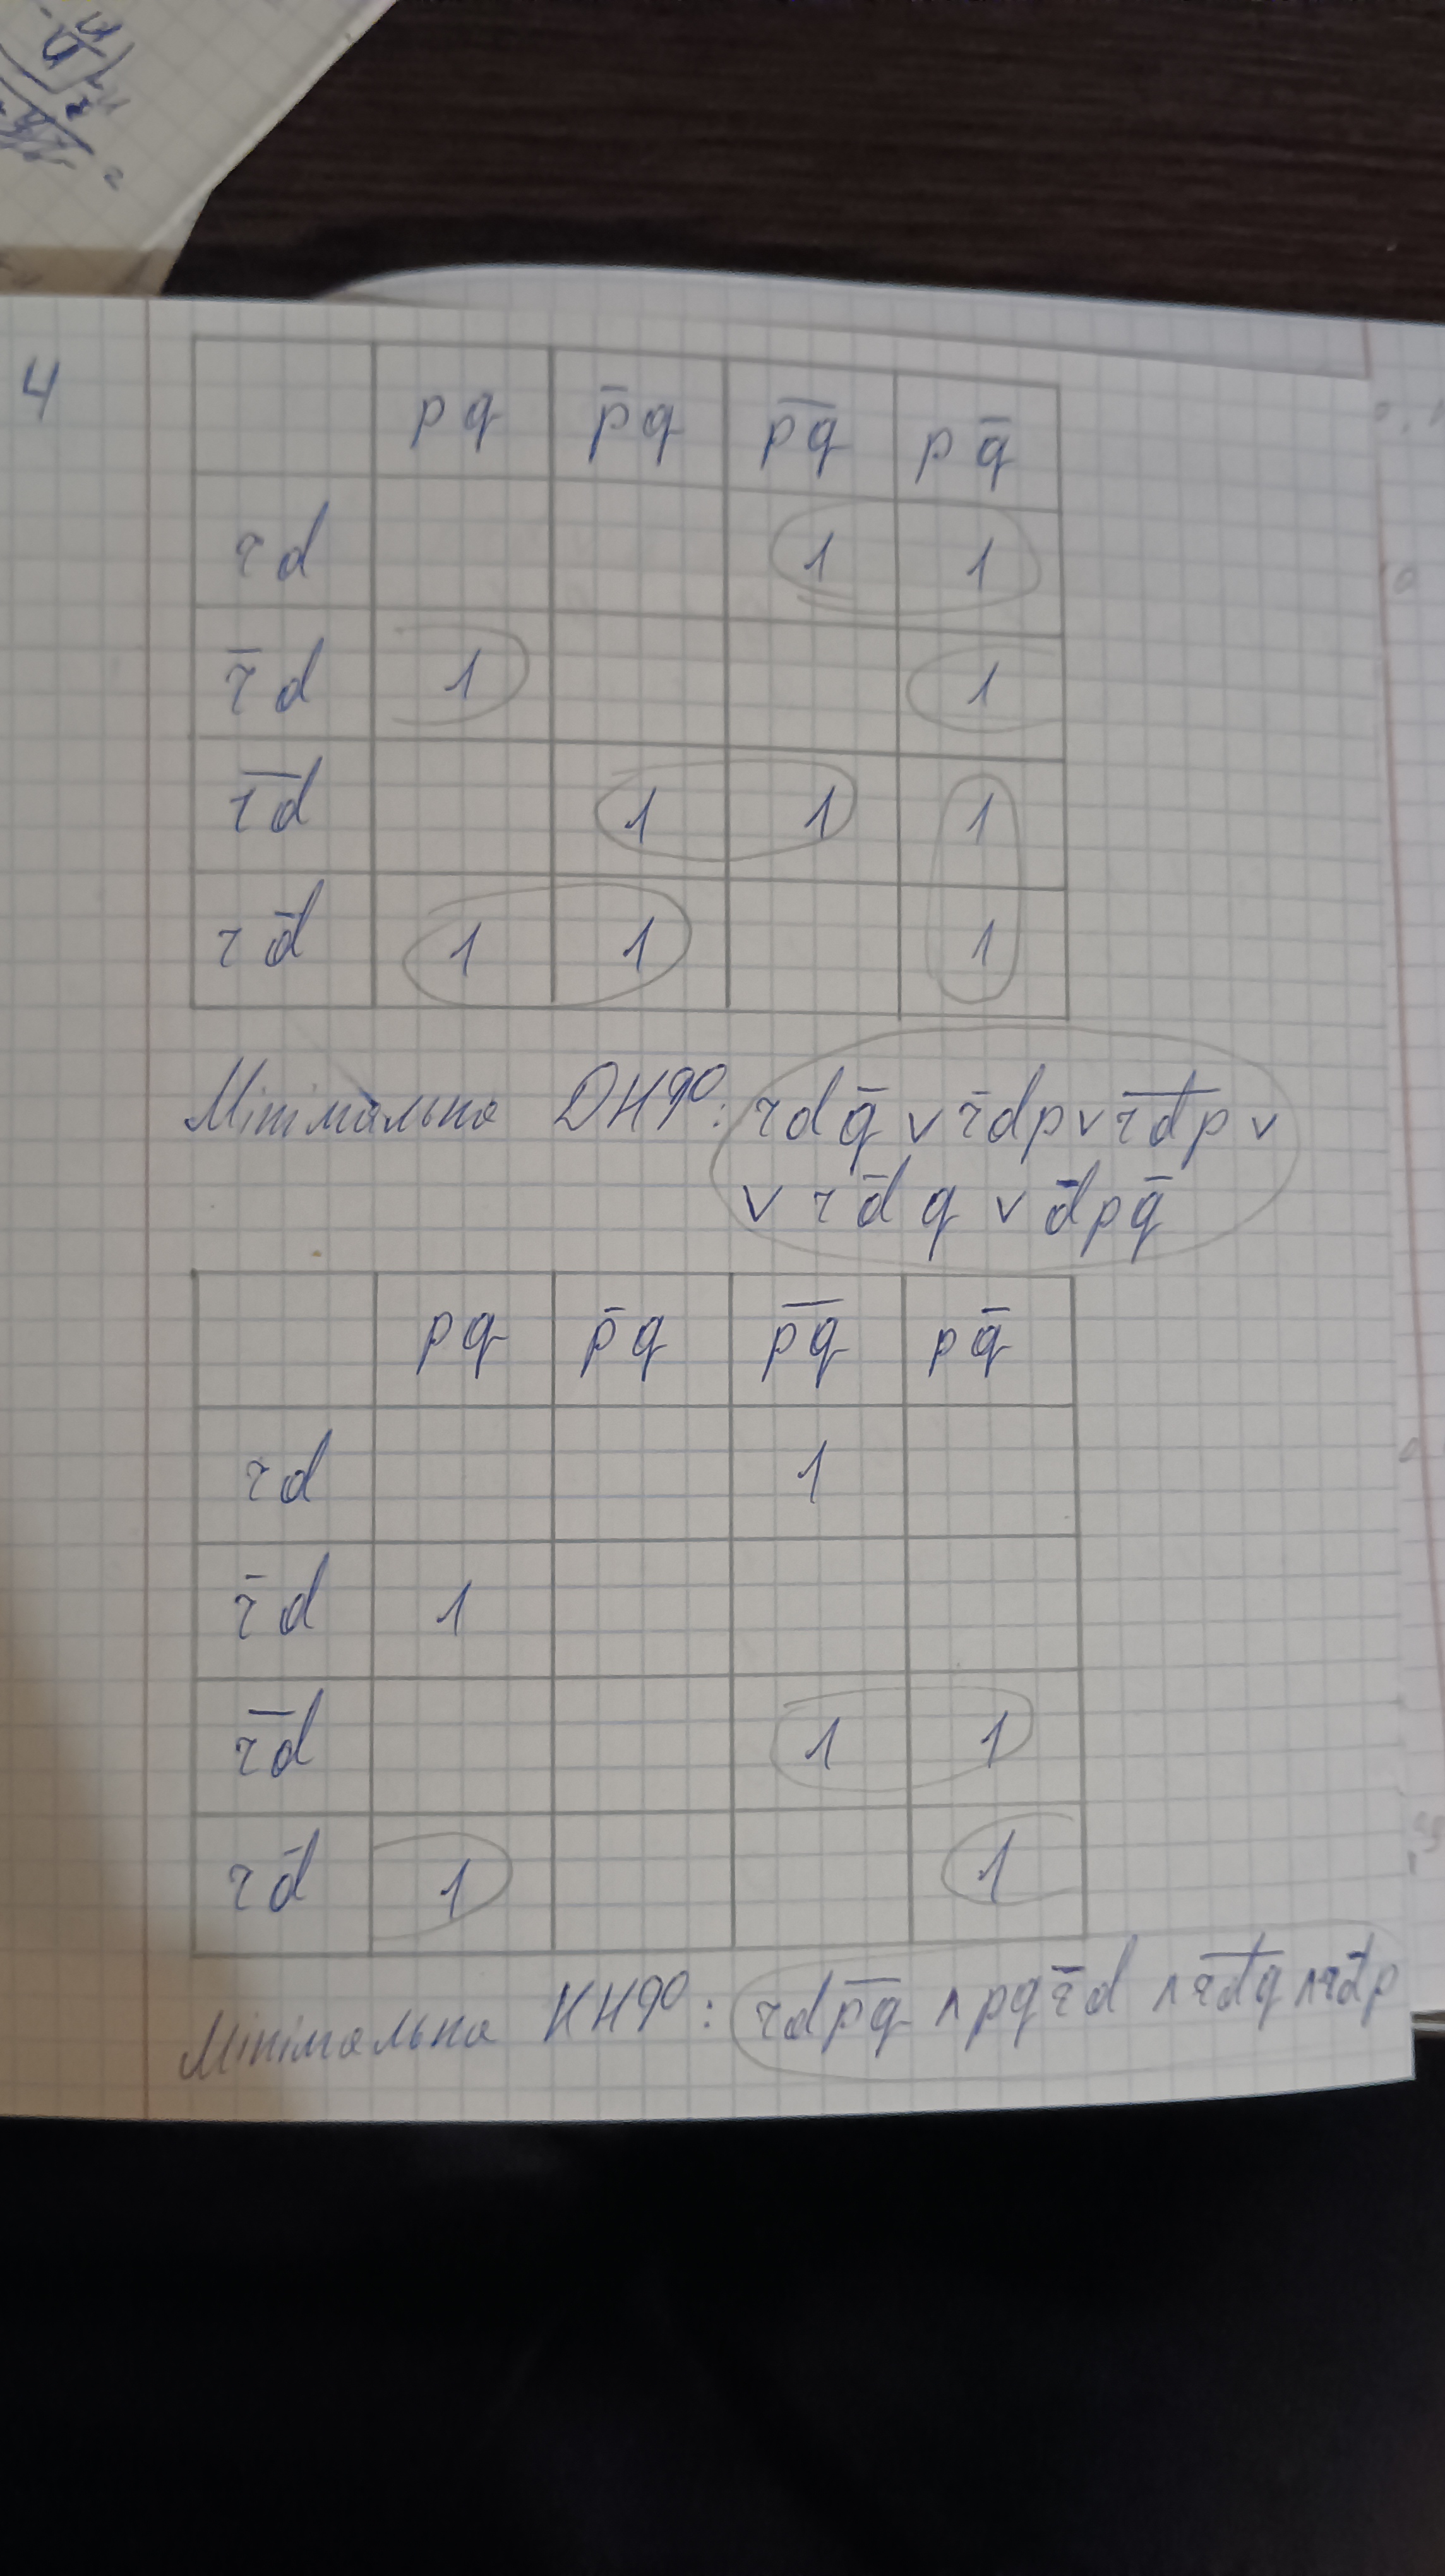 4
pq p̄q p̅q̅ pq̄
rd 1 1
r̄d 1 1
r̅d̅ 1 1 1
rd̄ 1 1 1
Мінімальна ДНФ: rdq̄ ∨ r̄dp ∨ r̅d̅p̅ ∨
∨ rd̄q ∨ d̄pq̄
pq p̄q p̅q̅ pq̄
rd 1
r̄d 1
r̅d̅ 1 1
rd̄ 1 1
Мінімальна КНФ: rdp̅q̅ ∧ pqr̄d ∧ r̅d̅q̅ ∧ rd̄p